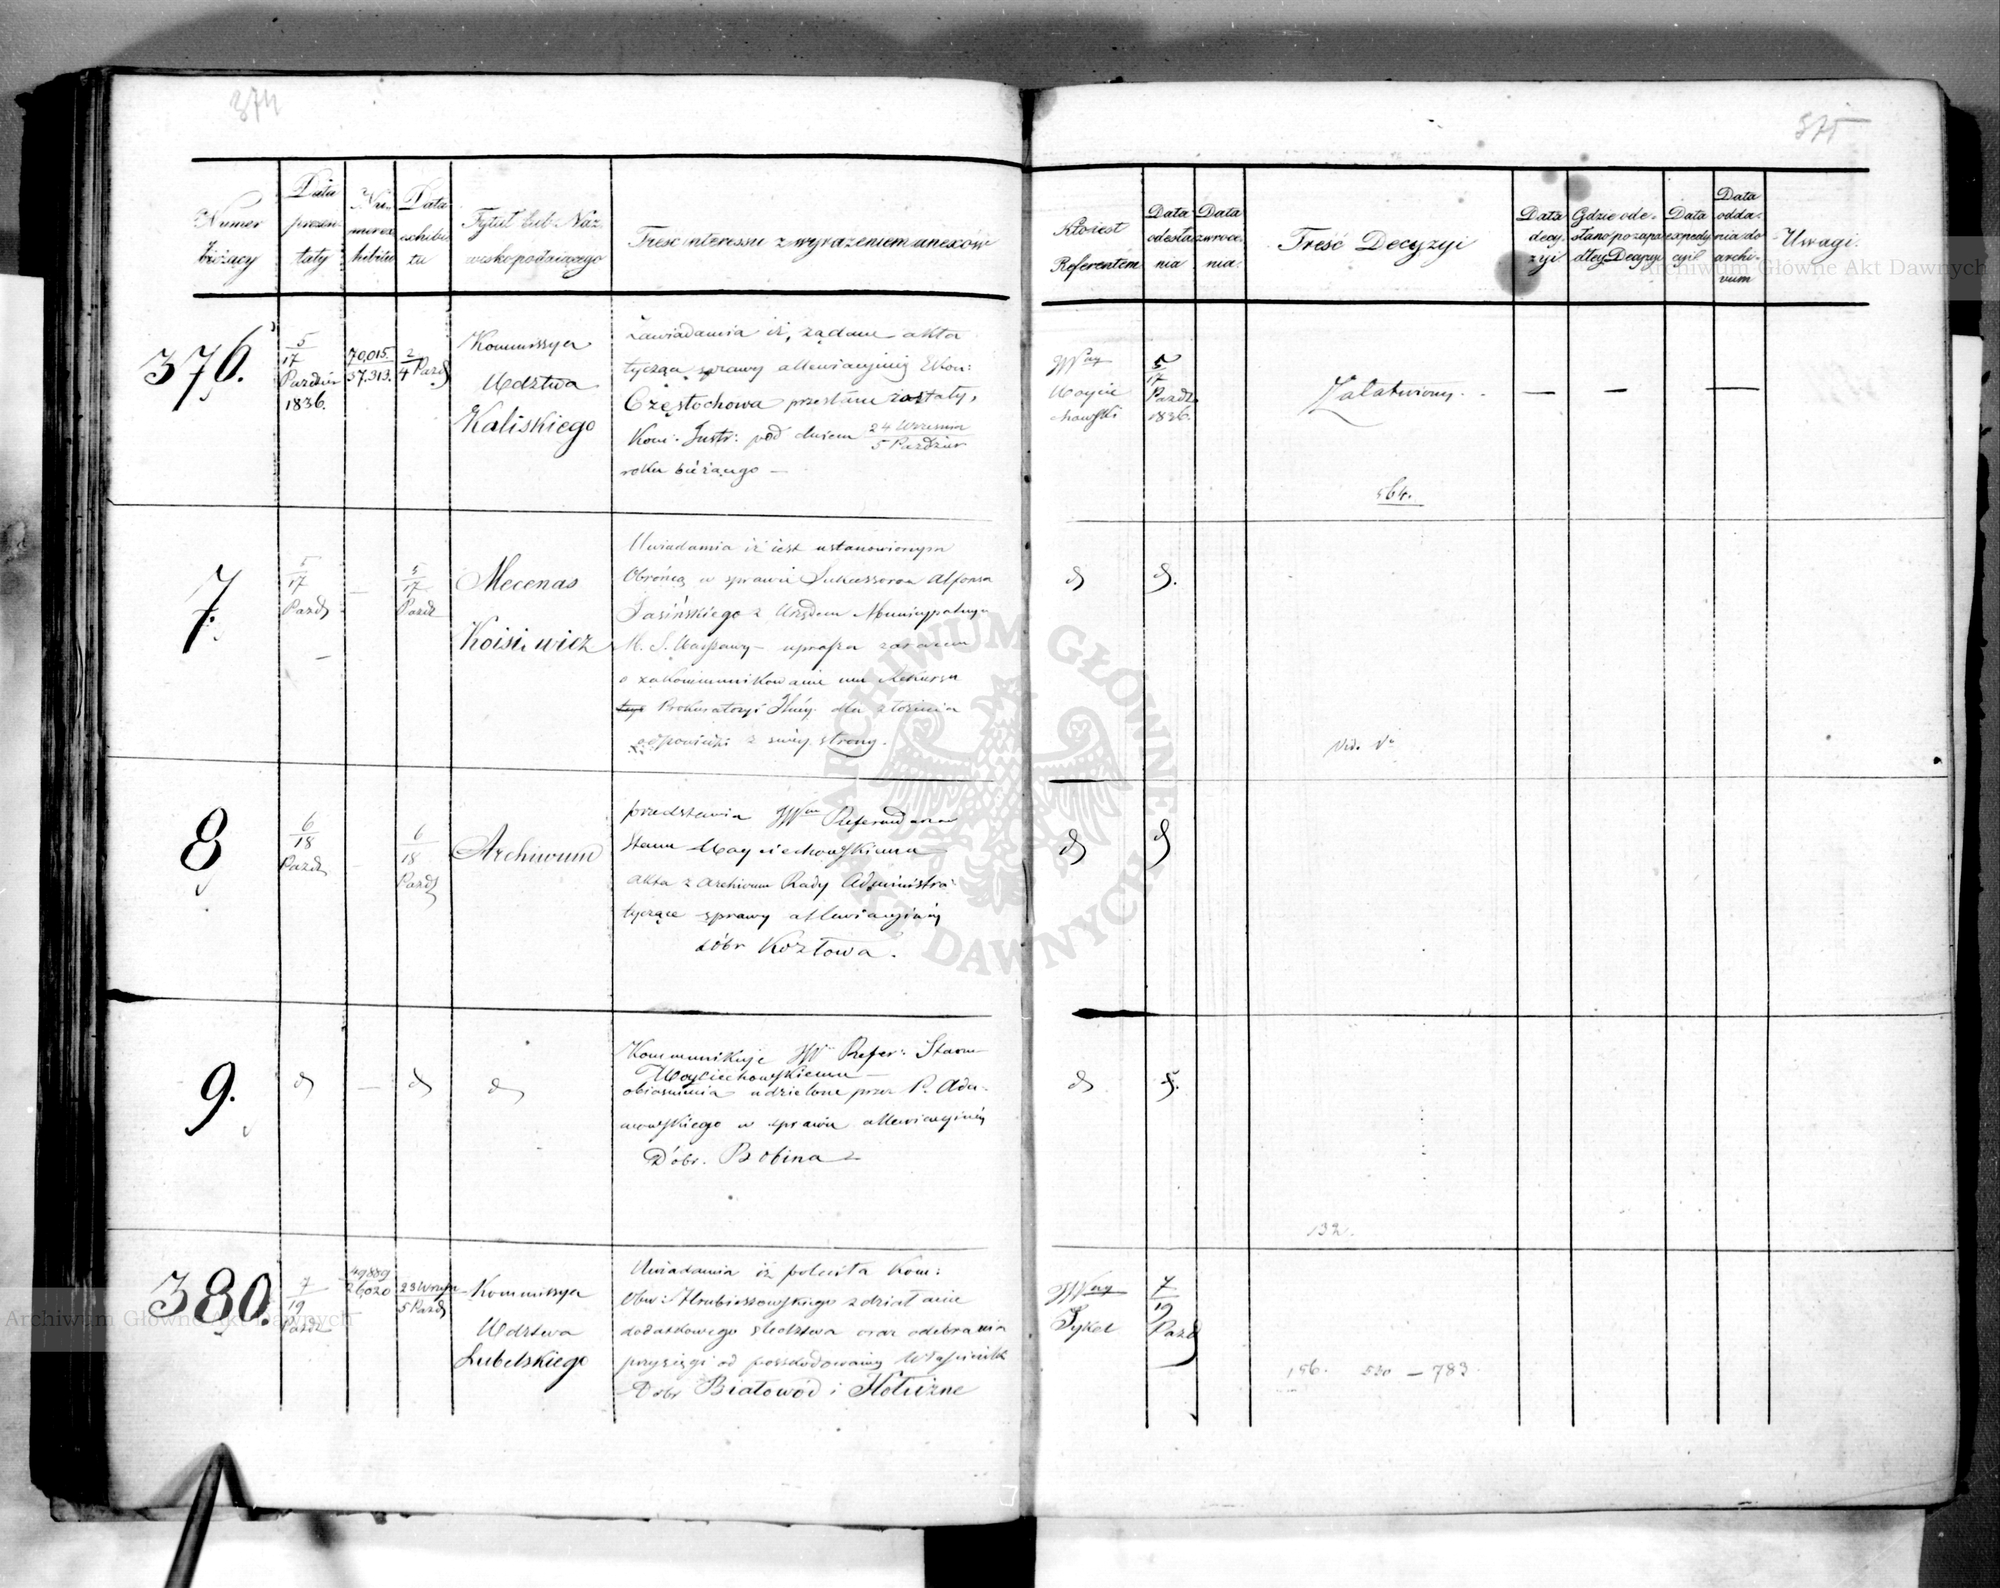 374
Numer bieżący
Data prezentaty
Numer exhibitu
Data exhibitu
Tytuł lub Nazwisko podaiącego
Treść interessu z wyrażeniem anexów
376.
5/17 Paźdźier 1836.
70,015. 57.313.
2/4 Paźd
Kommissya
Wdztwa
Kaliskiego
Zawiadamia iż, żądane akta
tyczące sprawy allewiacyjnéj Ekon:
Częstochowa przesłane zostały,
Kom: Justr: pod dniem 24 Wrześnin / 5 Paździer
roku bieżącego —
7.
5/17 Paźd
—
5/17 Paźd
Mecenas
Koisiewicz
Uwiadamia iż iest ustanowionym
Obrońcą w sprawie Sukcessorow Alfonsa
Jasińskiego z Urzędem Municypalnym
M. S. Warszawy — uprasza zarazem
o zakommunikowanie mu Rekursu
Prokuratoryi dla złożenia
odpowiedzi z swéy strony.
8
6/18 Paźd
—
6/18 Paźd
Archiwum
przedstawia JWmu Referendarzowi
Stanu Woyciechowskiemu
akta z Archiwum Rady Administra:
tyczące sprawy allewiacyjnéj
dóbr Kozłowa.
9.
d
—
d
d
Kommunikuje JWmu Refer: Stanu
Woyciechowskiemu —
obiasnienia udzielone przez P. Ada-
mowskiego w sprawie allewiacyjnéj
Dóbr. Bobina
380.
7/19 Paźd
49889 26020
23 Wrześn 5 Paźd
Kommissya
Wdztwa
Lubelskiego
Uwiadamia iż poleciła Kom:
Obw: Hrubieszowskiego zdziałanie
dodatkowego śledztwa oraz odebrania
przysięgi od poszkodowanéy Właścicielki
Dobr Białowód i Hołużne
375
Kto iest Referentem
Data odesłania
Data zwrócenia
Treść Decyzyi
Data decyzyi
Gdzie odesłano po zapadłey Decyzyi
Data expedycyi
Data oddania do archivum
Uwagi.
JWny
Woycie
chowski
5/17 Paźdz 1836.
Załatwiony.
— — —
564.
d
d.
Vide Vo
d
d
d
d.
132.
JWny
Tykel
7/19 Paźd
156. 530 — 783.
Archiwum Główne Akt Dawnych
ARCHIWUM GŁÓWNE AKT DAWNYCH
Archiwum Główne Akt Dawnych